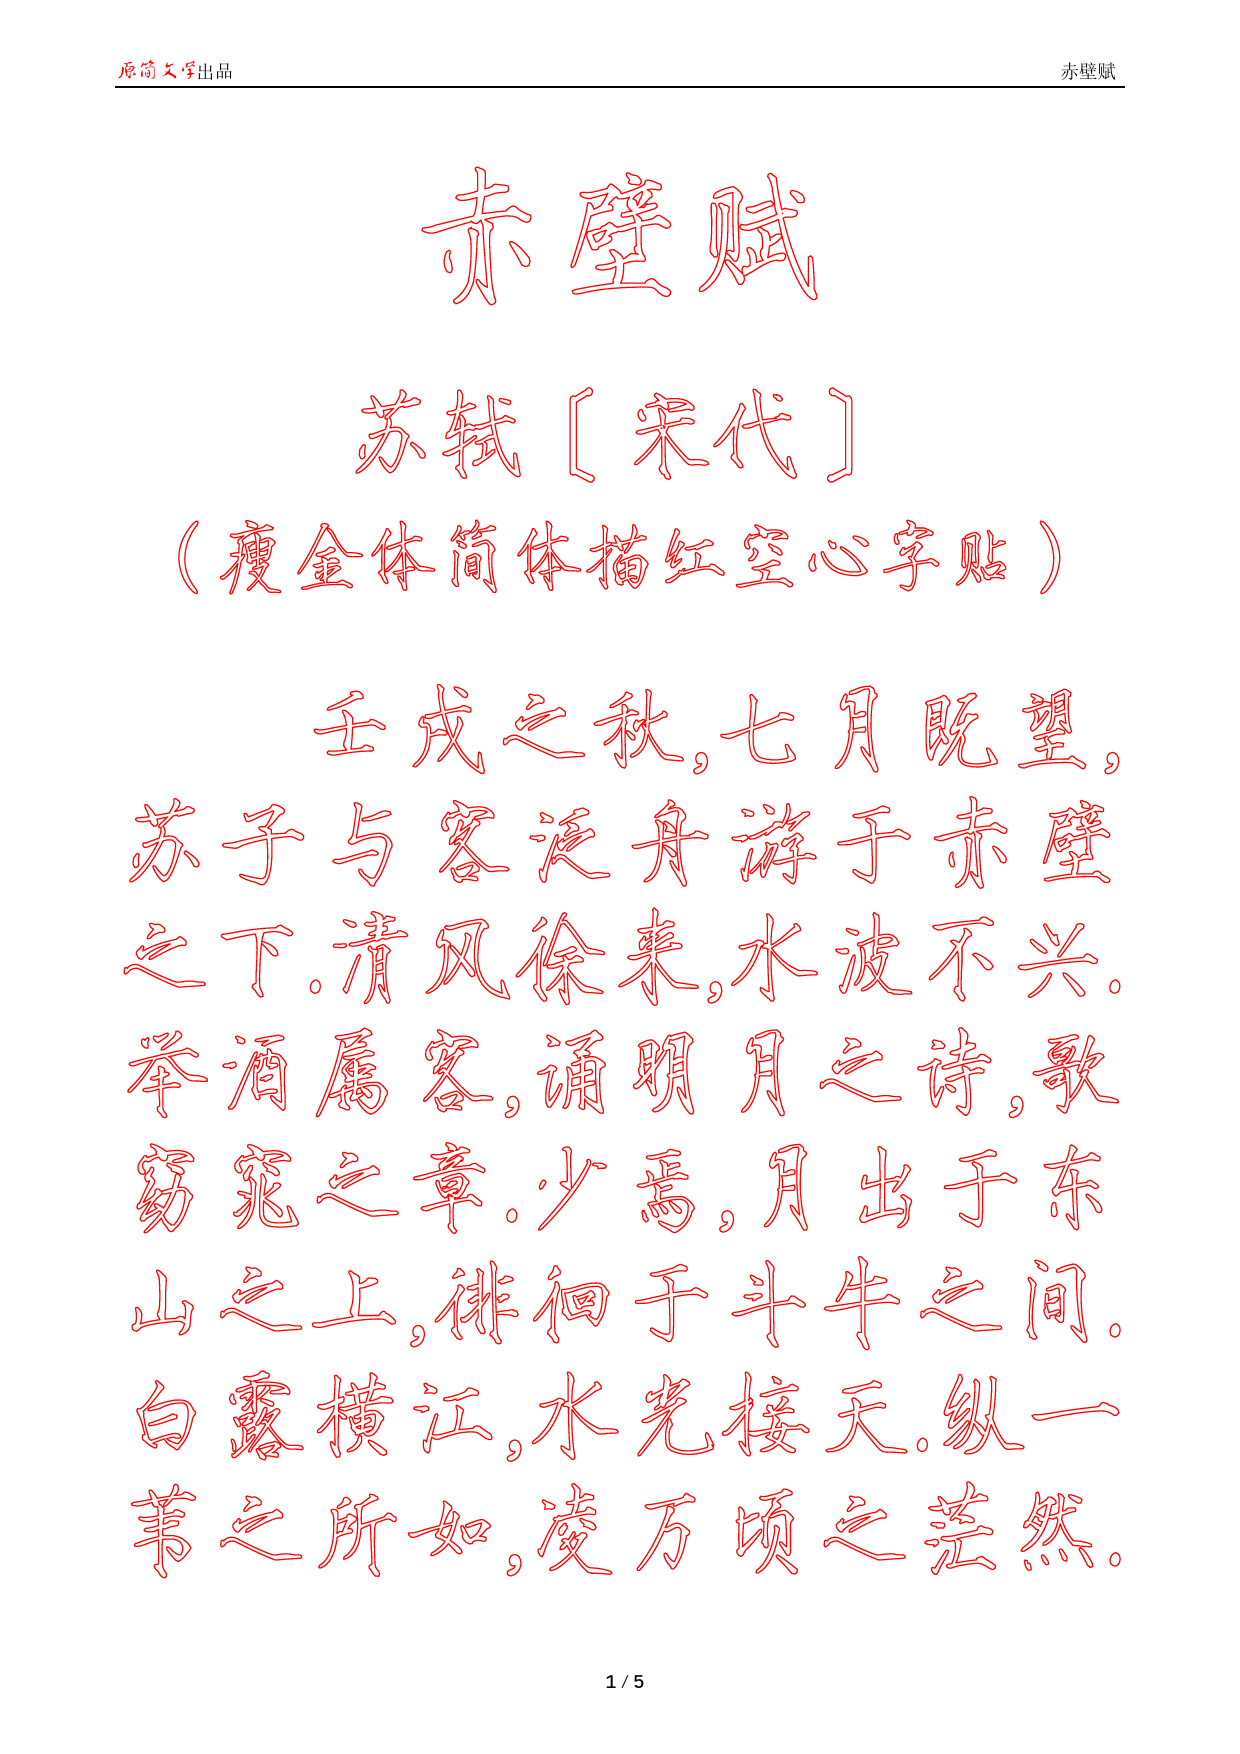 原简文学出品 赤壁赋
赤壁赋
苏轼〔宋代〕
(瘦金体简体描红空心字贴)
壬戌之秋,七月既望,
苏子与客泛舟游于赤壁
之下.清风徐来,水波不兴.
举酒属客,诵明月之诗,歌
窈窕之章.少焉,月出于东
山之上,徘徊于斗牛之间.
白露横江,水光接天.纵一
苇之所如,凌万顷之茫然.
1 / 5